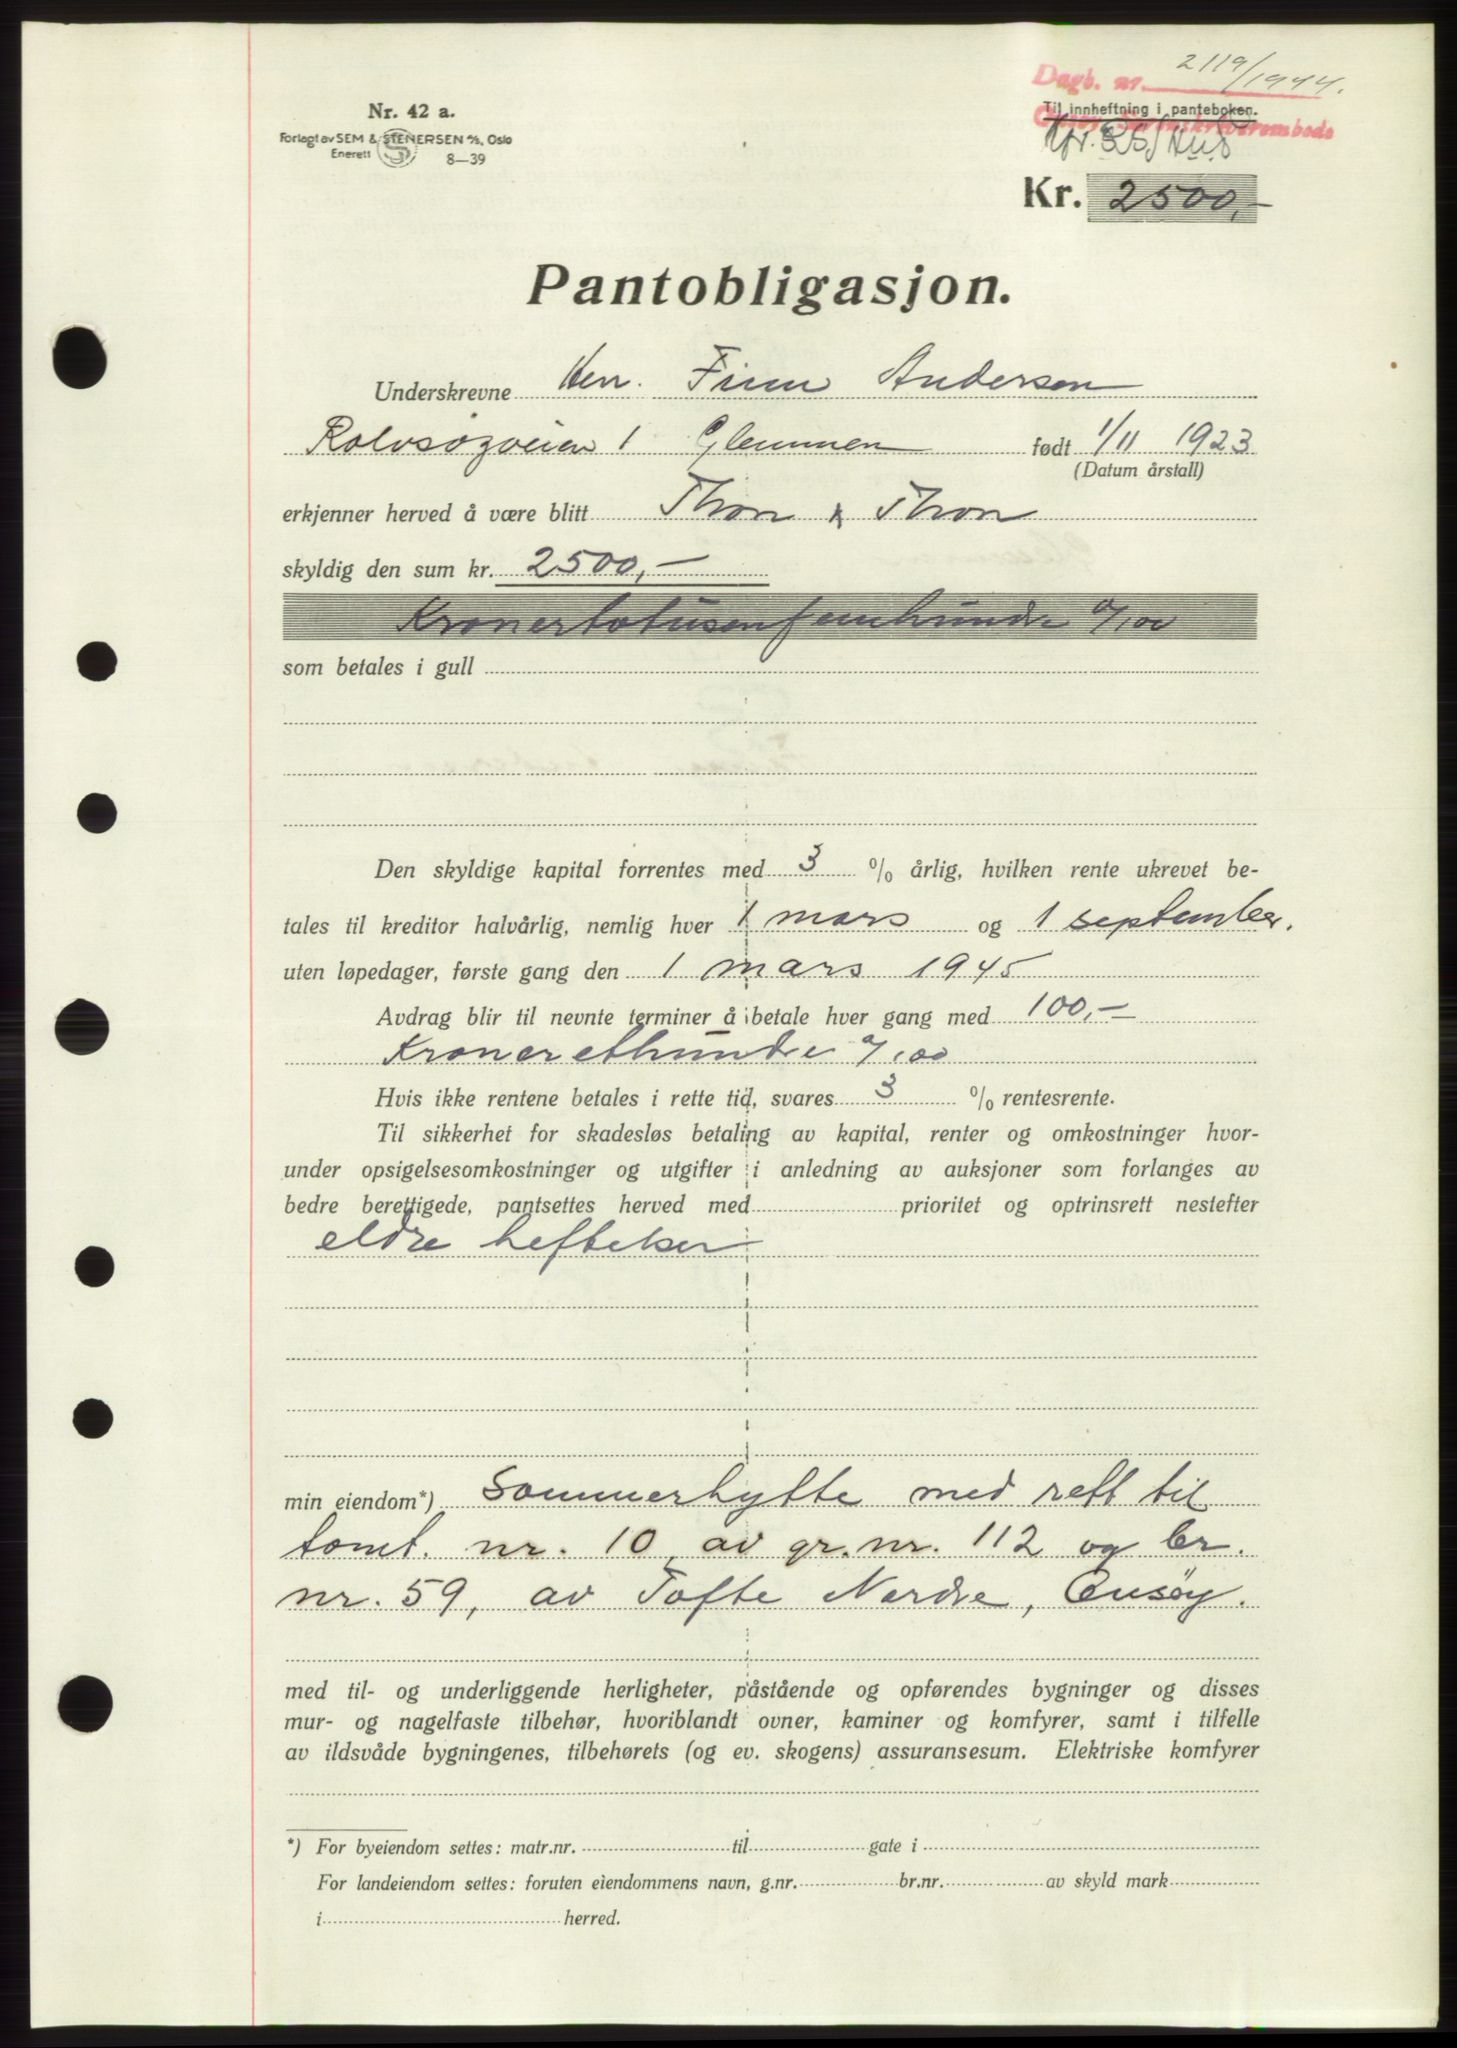 Dagb. nr. 2119/1944.
Til innheftning i panteboken.
Nr. 42 a.
Forlagt av SEM & STENERSEN A/S, Oslo
Enerett 8—39
Kr. 2500,-
Pantobligasjon.
Underskrevne Herr. Finn Andersen
Rolvsøyveien 1 Glemmen født 1/11 1923
(Datum årstall)
erkjenner herved å være blitt Thron & Thron
skyldig den sum kr. 2500,-
Kronertotusenfemhundre 0/100
som betales i gull
Den skyldige kapital forrentes med 3 % årlig, hvilken rente ukrevet be-
tales til kreditor halvårlig, nemlig hver 1 mars og 1 september.
uten løpedager, første gang den 1 mars 1945
Avdrag blir til nevnte terminer å betale hver gang med 100,-
Kroner etthundre 0/100
Hvis ikke rentene betales i rette tid, svares 3 % rentesrente.
Til sikkerhet for skadesløs betaling av kapital, renter og omkostninger hvor-
under opsigelsesomkostninger og utgifter i anledning av auksjoner som forlanges av
bedre berettigede, pantsettes herved med prioritet og optrinsrett nestefter
eldre heftelser
min eiendom*) Sommerhytte med rett til
tomt. nr. 10 av gr. nr. 112 og br.
nr. 59, av Tofte Nordre, Onsøy.
med til- og underliggende herligheter, påstående og opførendes bygninger og disses
mur- og nagelfaste tilbehør, hvoriblandt ovner, kaminer og komfyrer, samt i tilfelle
av ildsvåde bygningenes, tilbehørets (og ev. skogens) assuransesum. Elektriske komfyrer
*) For byeiendom settes: matr.nr. til gate i
For landeiendom settes: foruten eiendommens navn, g.nr. br.nr. av skyld mark
i herred.